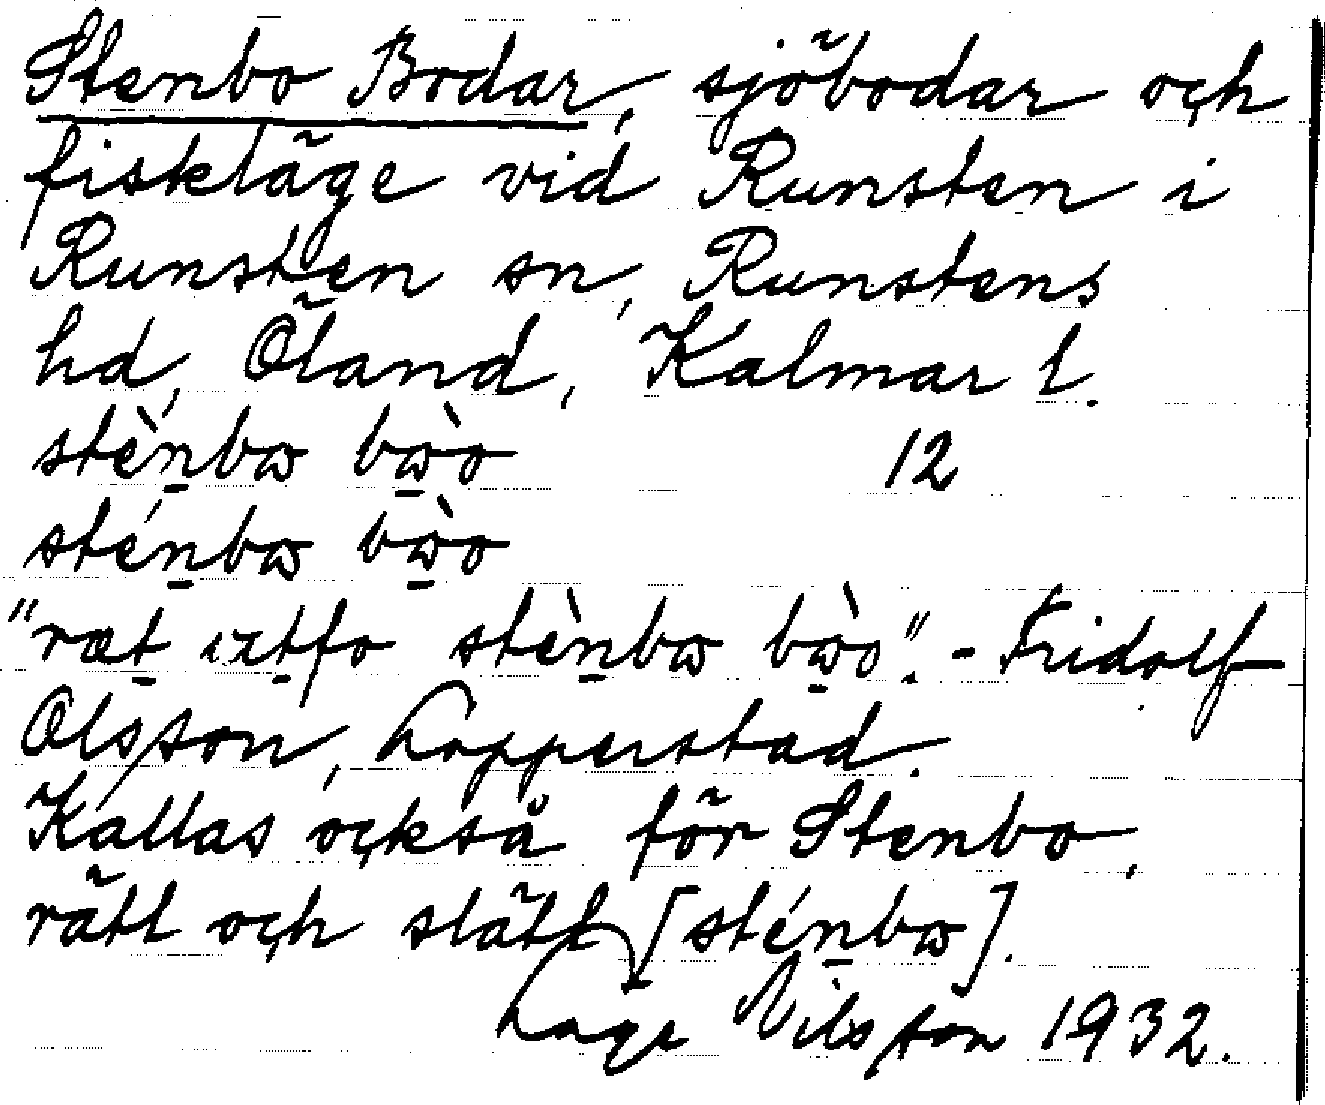 Stenbo Bodar, sjöbodar och
fiskläge vid Runsten i
Runsten sn, Runstens
hd, Öland, Kalmar l.
stènbɷ bɷ̀o 12
sténbɷ bɷ̀o
"ræt fo stènbɷ bɷ̀o". - Fridolf
Olsson, Lopperstad.
Kallas också för Stenbo,
rätt och slätt [sténbɷ].
Lage Nilsson 1932.